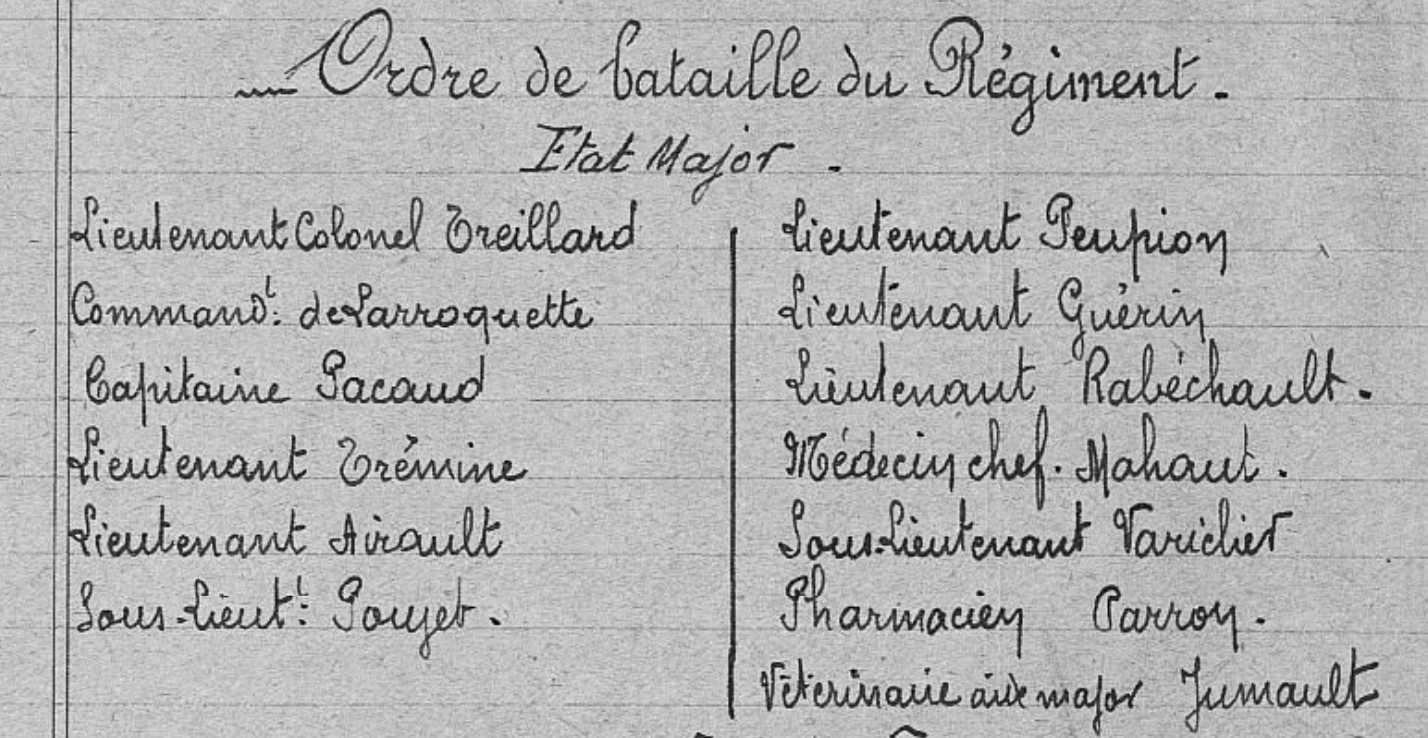 Ordre de bataille du Régiment.
Etat Major.
Lieutenant Colonel Treillard
Command.t de Larroquette
Capitaine Pacaud
Lieutenant Trémine
Lieutenant Airault
Sous-Lieut.t Poujet.
Lieutenant Peupion
Lieutenant Guérin
Lieutenant Rabéchault.
Médecin chef. Mahaut.
Sous-Lieutenant Variclier
Pharmacien Parron.
Vétérinaire aide major Jumault